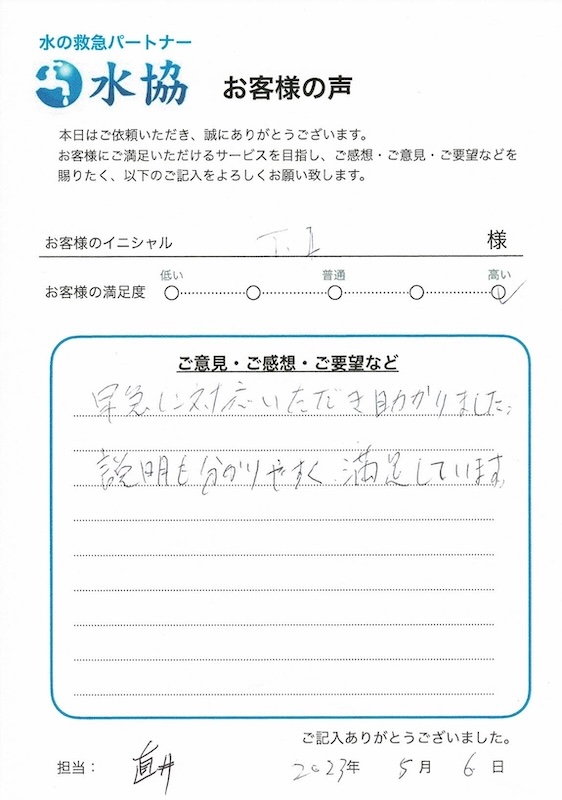 水の救急パートナー
水協 お客様の声
本日はご依頼いただき、誠にありがとうございます。
お客様にご満足いただけるサービスを目指し、ご感想・ご意見・ご要望などを
賜りたく、以下のご記入をよろしくお願い致します。
お客様のイニシャル T.I 様
低い 普通 高い
お客様の満足度
ご意見・ご感想・ご要望など
早急に対応いただき助かりました。
説明も分かりやすく満足しています。
ご記入ありがとうございました。
担当： 直井 2023年 5月 6日